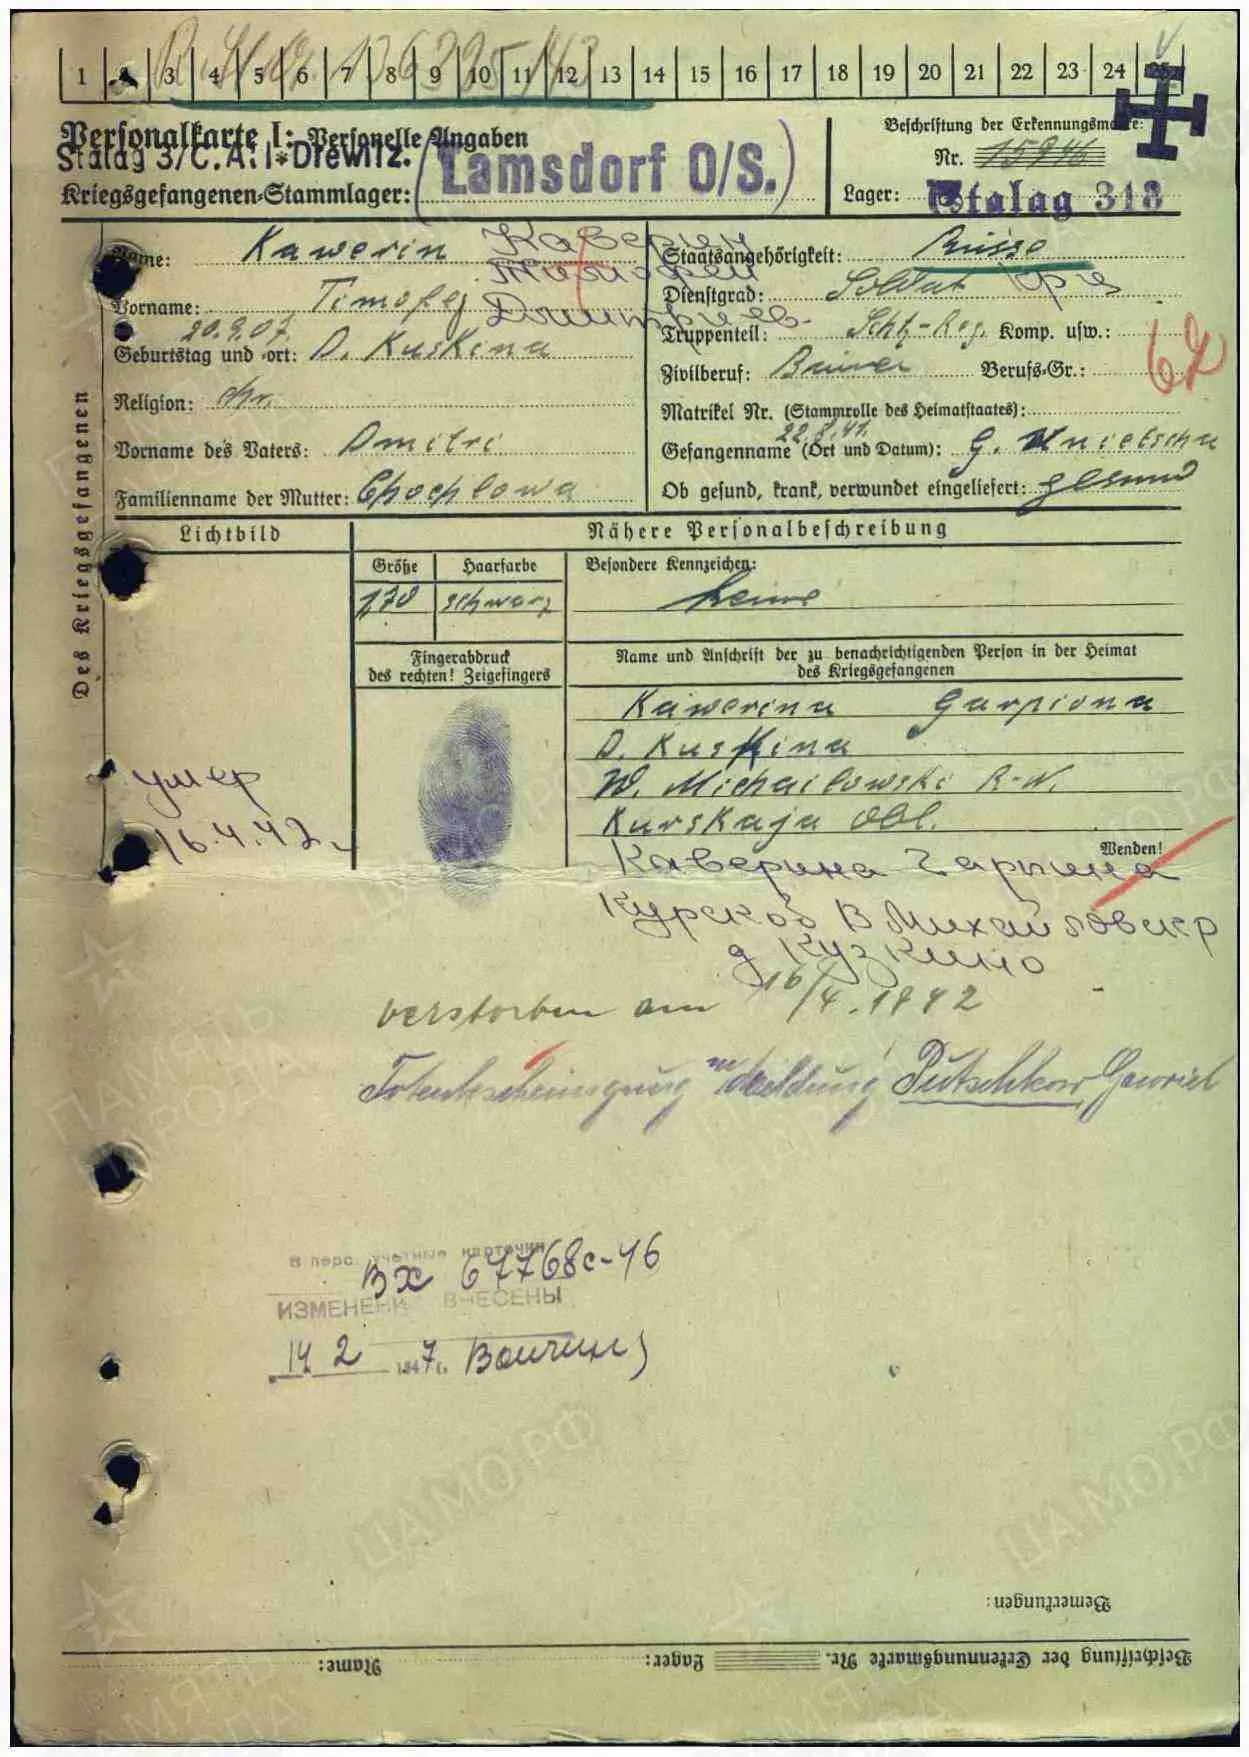 1 2 3 4 5 6 7 8 9 10 11 12 13 14 15 16 17 18 19 20 21 22 23 24 25
Personalkarte I: Personelle Angaben
Beschriftung der Erkennungsmarke:
Stalag 3/C. A: I*Drewitz.
(Lamsdorf O/S.)
Nr. 15946
Kriegsgefangenen-Stammlager:
Lager: Stalag 318
Des Kriegsgefangenen
Name: Kawerin Каверин
Vorname: Timofej Тимофей
Дмитриев.
20.9.07.
Geburtstag und -ort: D. Kuskina
Religion: chr.
Vorname des Vaters: Dmitri
Familienname der Mutter: Chochlowa
Staatsangehörigkeit: Russe
Dienstgrad: Soldat
Truppenteil: Schtz-Reg. Komp. usw.:
Zivilberuf: Berufs-Gr.:
67
Matrikel Nr. (Stammrolle des Heimatstaates):
22.8.41.
Gefangenname (Ort und Datum): G.
Ob gesund, krank, verwundet eingeliefert: gesund
Lichtbild
Nähere Personalbeschreibung
Größe Haarfarbe Besondere Kennzeichen:
170 schwarz keine
Fingerabdruck
des rechten! Zeigefingers
Name und Anschrift der zu benachrichtigenden Person in der Heimat
des Kriegsgefangenen
Kawerina Garpiona
D. Kuskina
W. Michailowski R-N.
Kurskaja Obl.
Wenden!
умер
16.4.42.
Каверина Гарпина
Курской В.Михайловскр
д Кузкино
verstorben am 16/4.1942
Meldung Putschkow Gawriel
В перс. учетные карточки
Вх 67768с-46
ИЗМЕНЕНИ ВНЕСЕНЫ
14 2 1947г.
Bemerkungen:
Beschriftung der Erkennungsmarke Nr. Lager: Name:
ПАМЯТЬ НАРОДА
ЦАМО.РФ